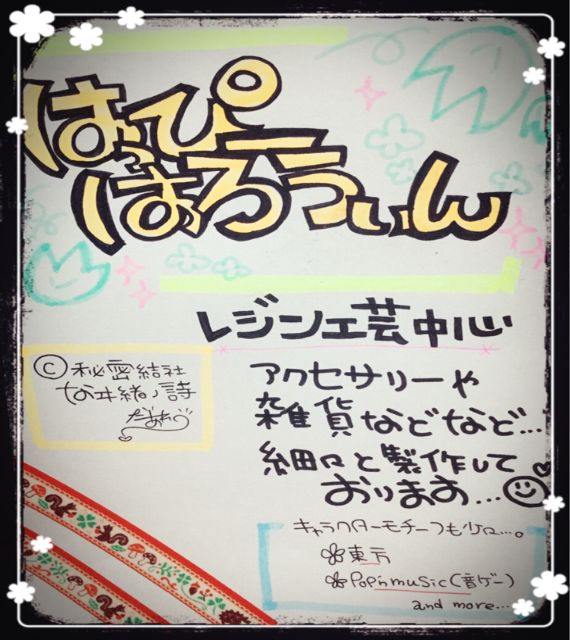 はっぴ
はろうぃん
レジン工芸中心
Ⓒ秘密結社
アクセサリーや
雑貨などなど...
細々と製作して
おります...
キャラクターモチーフも少々...。
東方
Pop'nmusic(音ゲー)
and more...